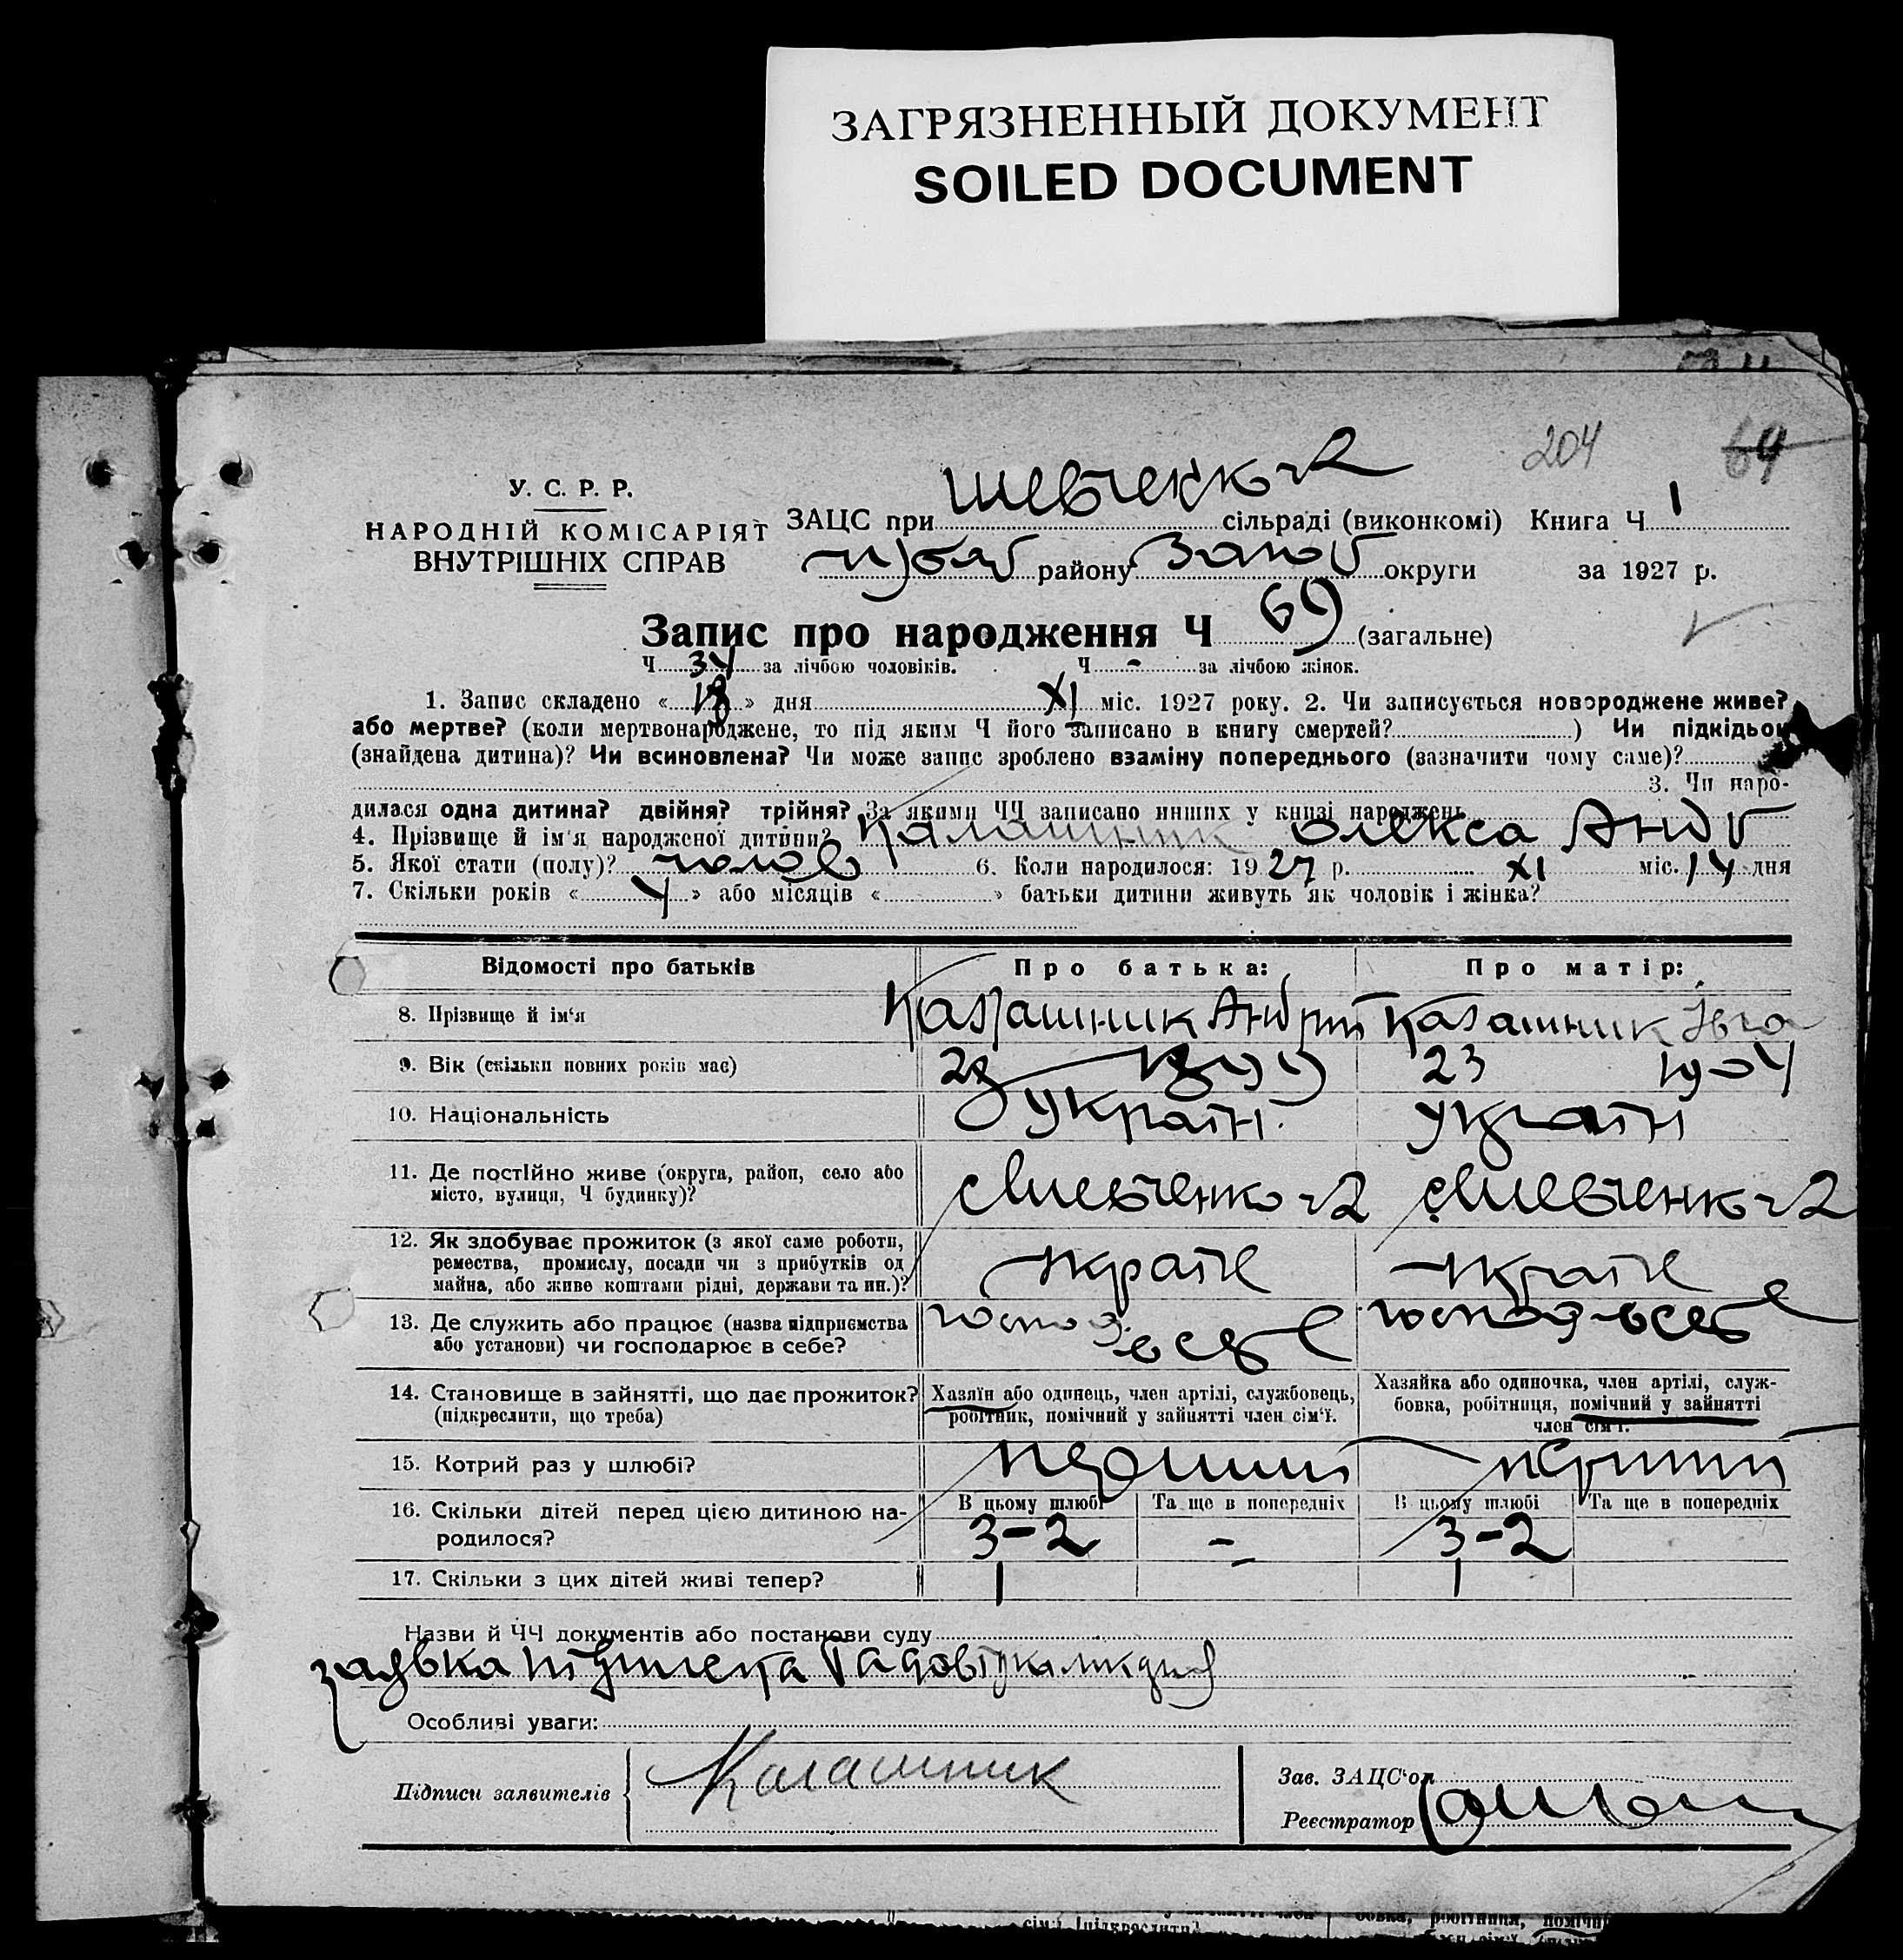 ЗАГРЯЗНЕННЫЙ ДОКУМЕНТ
SOILED DOCUMENT
204 64
У. С. Р. Р.
НАРОДНІЙ КОМІСАРІЯТ
ВНУТРІШНІХ СПРАВ
ЗАЦС при Шевченко сільраді (виконкомі) Книга Ч 1
району Запоб округи за 1927 р.
Запис про народження Ч 69 (загальне)
Ч 34 за лічбою чоловіків. Ч - за лічбою жінок.
1. Запис складено « 18 » дня XI міс. 1927 року. 2. Чи записується новороджене живе?
або мертве? (коли мертвонароджене, то під яким Ч його записано в книгу смертей? ) Чи підкідьок
(знайдена дитина)? Чи всиновлена? Чи може запис зроблено взаміну попереднього (зазначити чому саме)?
3. Чи наро-
дилася одна дитина? двійня? трійня? За якими ЧЧ записано инших у книзі народжень
4. Прізвище й ім'я народженої дитини? Калашник Олекса Андр
5. Якої стати (полу)? чолов 6. Коли народилося: 1927 р. XI міс. 14 дня
7. Скільки років « 4 » або місяців « » батьки дитини живуть як чоловік і жінка?
Відомості про батьків Про батька: Про матір:
8. Прізвище й ім'я Калашник Андрій Калашник Івга
9. Вік (скільки повних років має) 28 1899 23 1904
10. Національність україн. україн
11. Де постійно живе (округа, район, село або
місто, вулиця, Ч будинку)? с Шевченко с Шевченко
12. Як здобуває прожиток (з якої саме роботи,
ремества, промислу, посади чи з прибутків од
майна, або живе коштами рідні, держави та ин.)?
13. Де служить або працює (назва підприємства
або установи) чи господарює в себе? господ. в себе господ в себе
14. Становище в зайнятті, що дає прожиток?
(підкреслити, що треба)
Хазяїн або одинець, член артілі, службовець,
робітник, помічний у зайнятті член сім'ї.
Хазяйка або одиночка, член артілі, служ-
бовка, робітниця, помічний у зайнятті
член сім'ї.
15. Котрий раз у шлюбі? перший перший
16. Скільки дітей перед цією дитиною на-
родилося?
В цьому шлюбі Та ще в попередніх В цьому шлюбі Та ще в попередніх
3-2 - 3-2
17. Скільки з цих дітей живі тепер? 1 1
Назви й ЧЧ документів або постанови суду
заявка
Особливі уваги:
Підписи заявителів Калашник
Зав. ЗАЦС'ом
Реєстратор
сім'ї (підкреслити)
бовка, робітниця, помічни